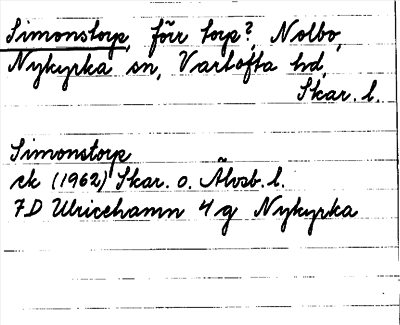 Simonstorp, förr torp?, Nolbo,
Nykyrka sn, Vartofta hd,
Skar. l.
Simonstorp
ek (1962) Skar. o. Älvsb. l.
7D Ulricehamn 4 g Nykyrka